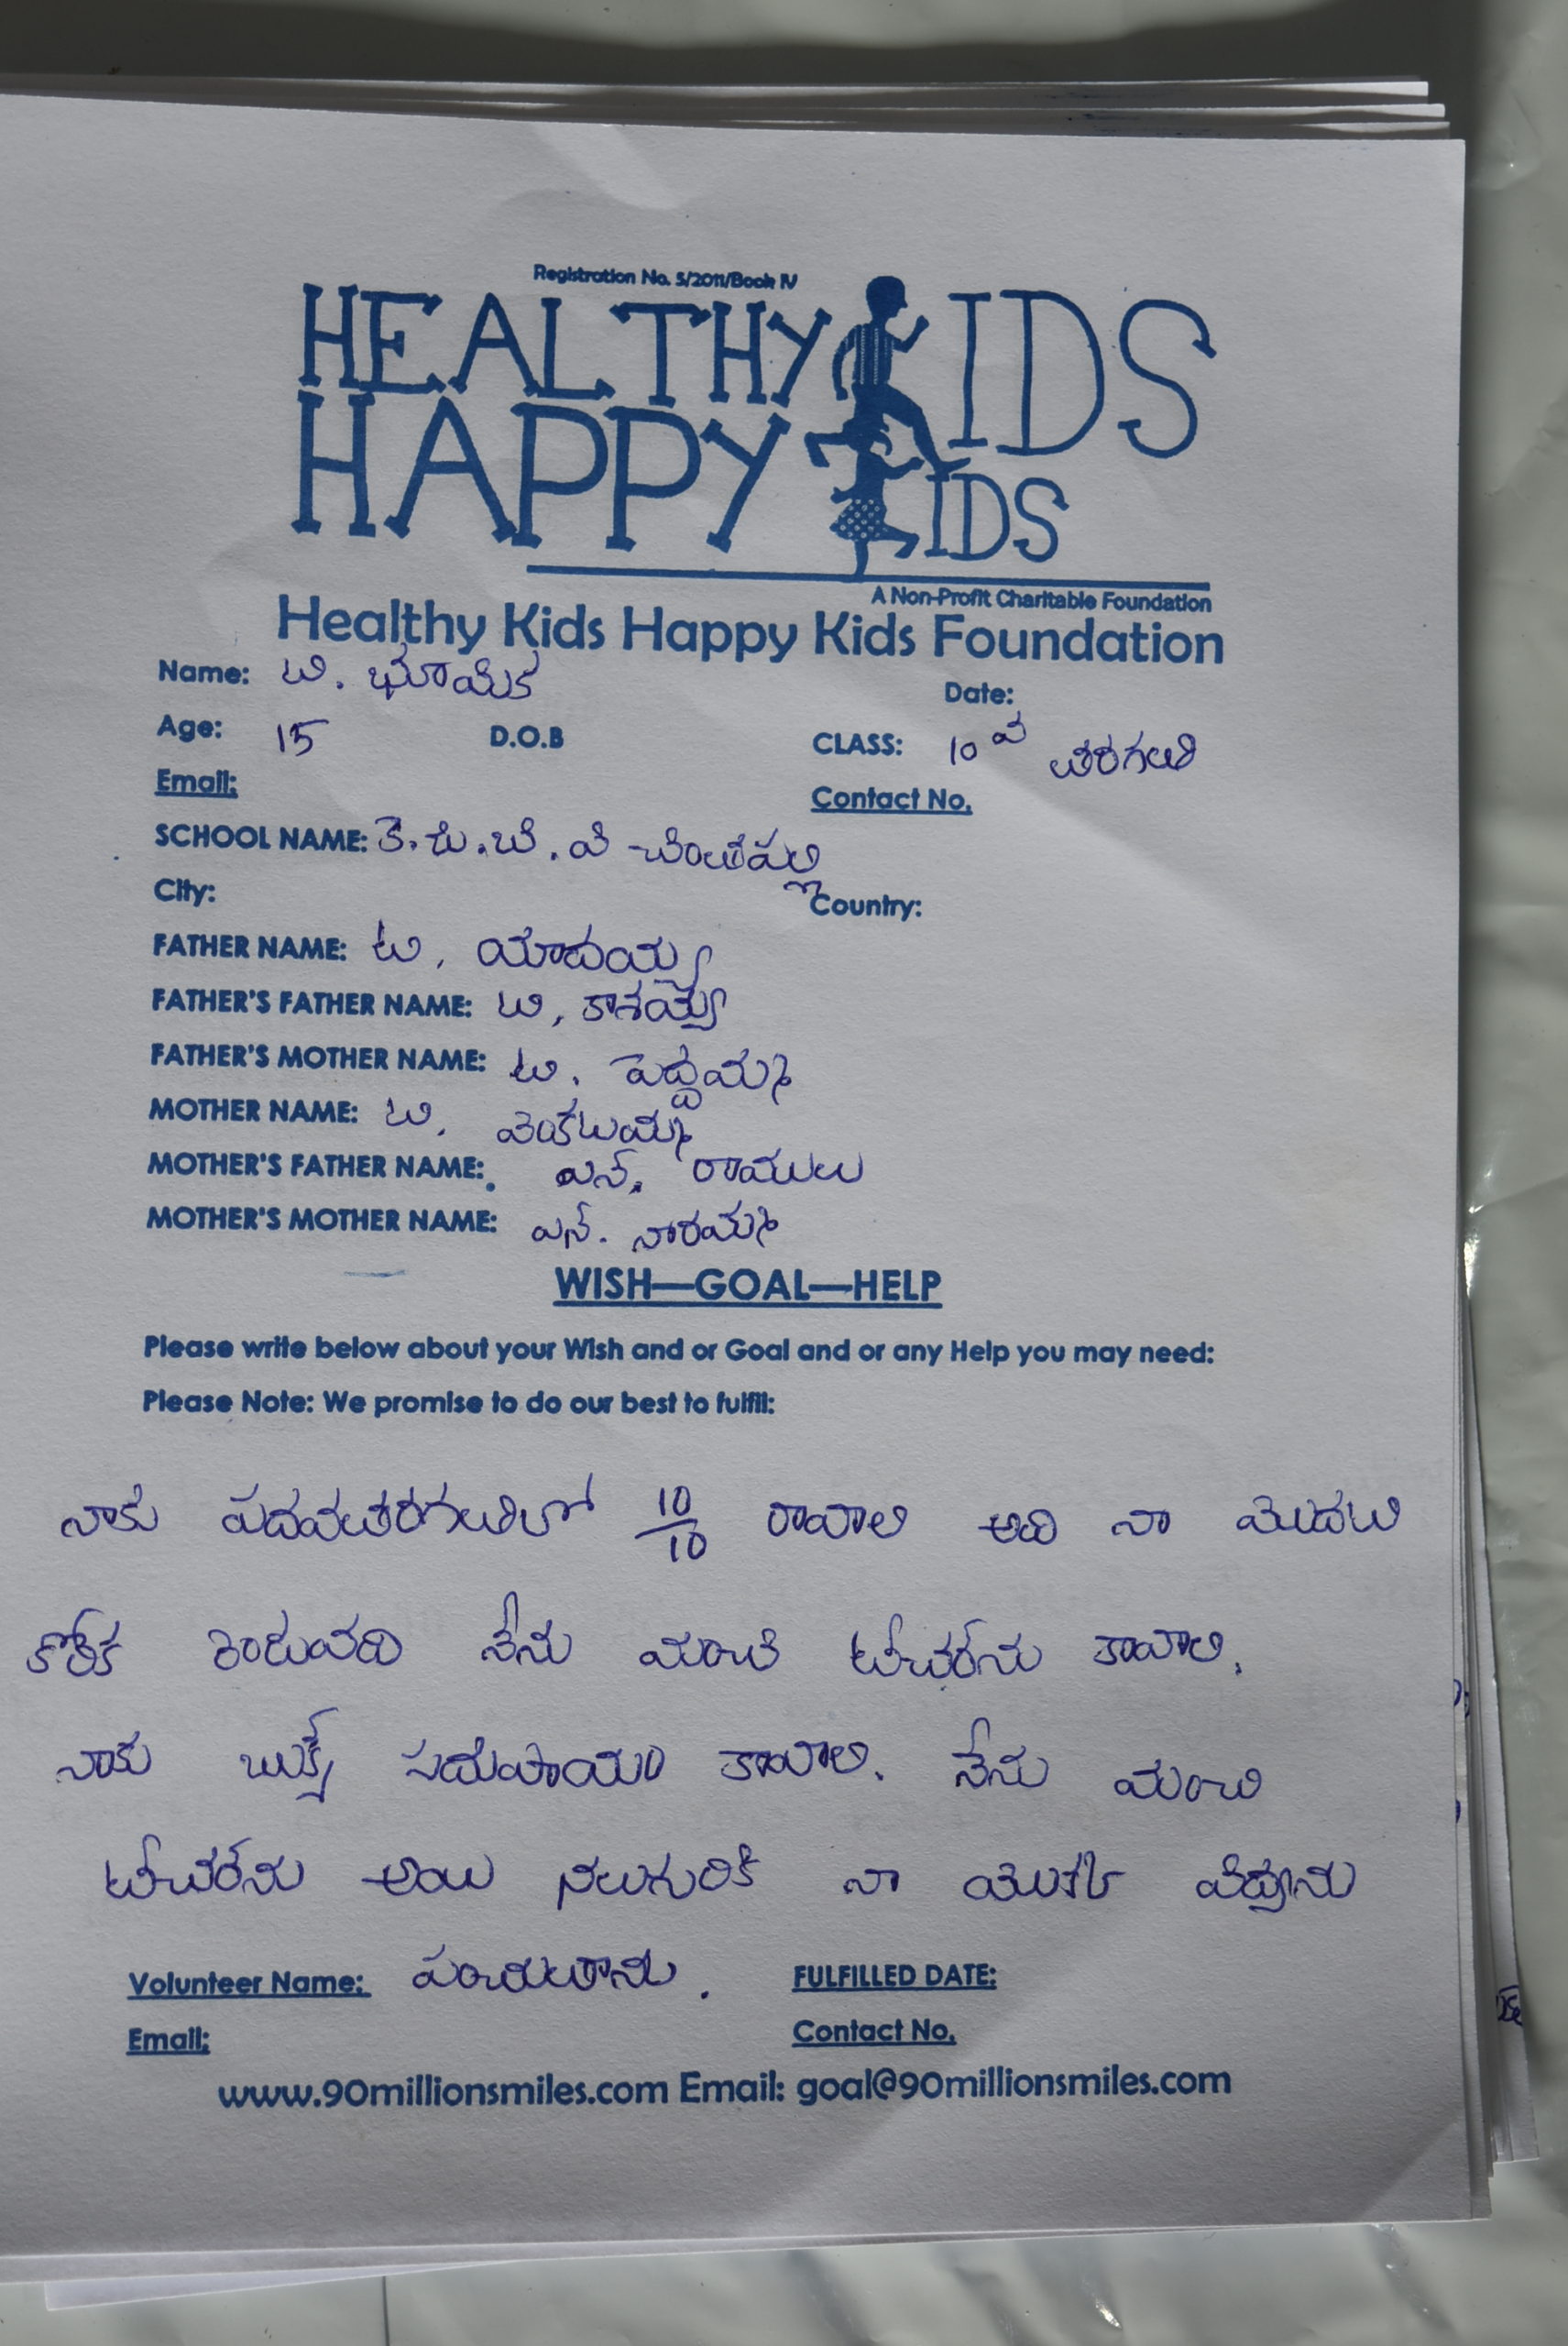 Registration No. 5/2011/Book IV
HEALTHY KIDS
HAPPY KIDS
A Non-Profit Charitable Foundation
Healthy Kids Happy Kids Foundation
Name: టి. భూమిక
Date:
Age: 15 D.O.B CLASS: 10 వ తరగతి
Email: Contact No.
SCHOOL NAME: కె.జి.బి.వి చింతపల్లి
City: Country:
FATHER NAME: టి. యాదయ్య
FATHER'S FATHER NAME: టి, కాశయ్య
FATHER'S MOTHER NAME: టి. పెద్దమ్మ
MOTHER NAME: టి. వెంకటమ్మ
MOTHER'S FATHER NAME: ఎన్. రాములు
MOTHER'S MOTHER NAME: ఎన్. నారమ్మ
WISH—GOAL—HELP
Please write below about your Wish and or Goal and or any Help you may need:
Please Note: We promise to do our best to fulfil:
నాకు పదవతరగతిలో 10/10 రావాలి అది నా మొదటి
కోరిక రెండువది నేను మంచి టీచర్‌ను కావాలి.
నాకు బుక్స్ సదుపాయం కావాలి. నేను మంచి
టీచర్‌ను అయి నలుగురికి నా యొక్క విద్యను
పంచుతాను.
Volunteer Name: FULFILLED DATE:
Email: Contact No.
www.90millionsmiles.com Email: goal@90millionsmiles.com